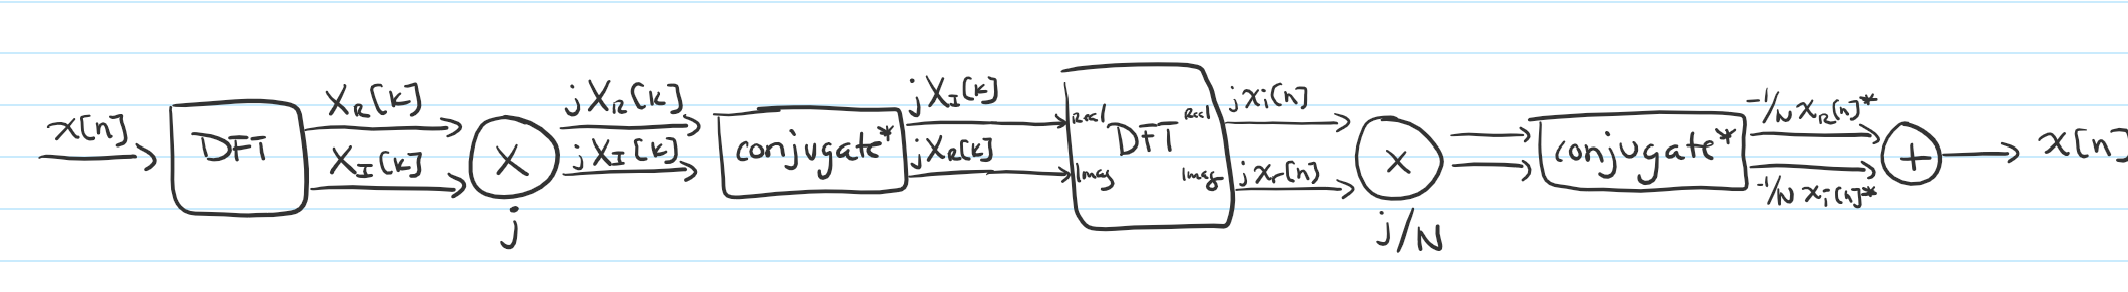 x[n]
DFT
X_R[k]
X_I[k]
X
j
jX_R[k]
jX_I[k]
conjugate*
jX_I[k]
jX_R[k]
Real
Imag
DFT
Real
Imag
jx_i[n]
jx_r[n]
x
j/N
conjugate*
-1/N x_R[n]*
-1/N x_i[n]*
+
x[n]